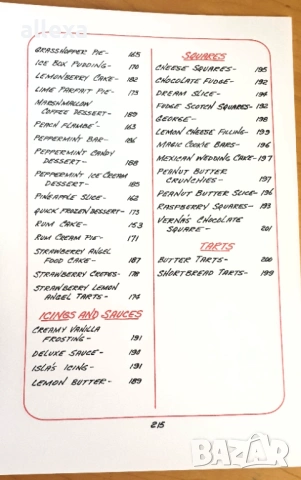 allexa
GRASSHOPPER PIE- 165
ICE BOX PUDDING- 170
LEMONBERRY CAKE- 182
LIME PARFAIT PIE- 173
MARSHMALLOW
COFFEE DESSERT- 189
PEACH FLAMBÉ- 163
PEPPERMINT BAR- 186
PEPPERMINT CANDY
DESSERT- 188
PEPPERMINT ICE CREAM
DESSERT- 185
PINEAPPLE SLICE- 162
QUICK FROZEN DESSERT- 173
RUM CAKE- 153
RUM CREAM PIE- 171
STRAWBERRY ANGEL
FOOD CAKE- 187
STRAWBERRY CREPES- 178
STRAWBERRY LEMON
ANGEL TARTS- 174
ICINGS AND SAUCES
CREAMY VANILLA
FROSTING- 191
DELUXE SAUCE- 190
ISLA'S ICING- 191
LEMON BUTTER- 189
SQUARES
CHEESE SQUARES- 195
CHOCOLATE FUDGE- 192
DREAM SLICE- 194
FUDGE SCOTCH SQUARES- 192
GEORGE- 198
LEMON CHEESE FILLING- 199
MAGIC COOKIE BARS- 196
MEXICAN WEDDING CAKE- 197
PEANUT BUTTER
CRUNCHIES- 197
PEANUT BUTTER SLICE- 196
RASPBERRY SQUARES- 193
VERNA'S CHOCOLATE
SQUARE- 201
TARTS
BUTTER TARTS- 200
SHORTBREAD TARTS- 199
215
BAZAR